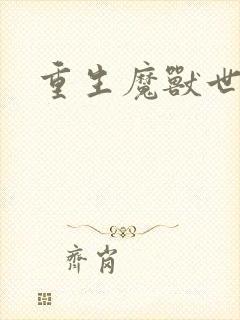 重生魔獸世
齊肖